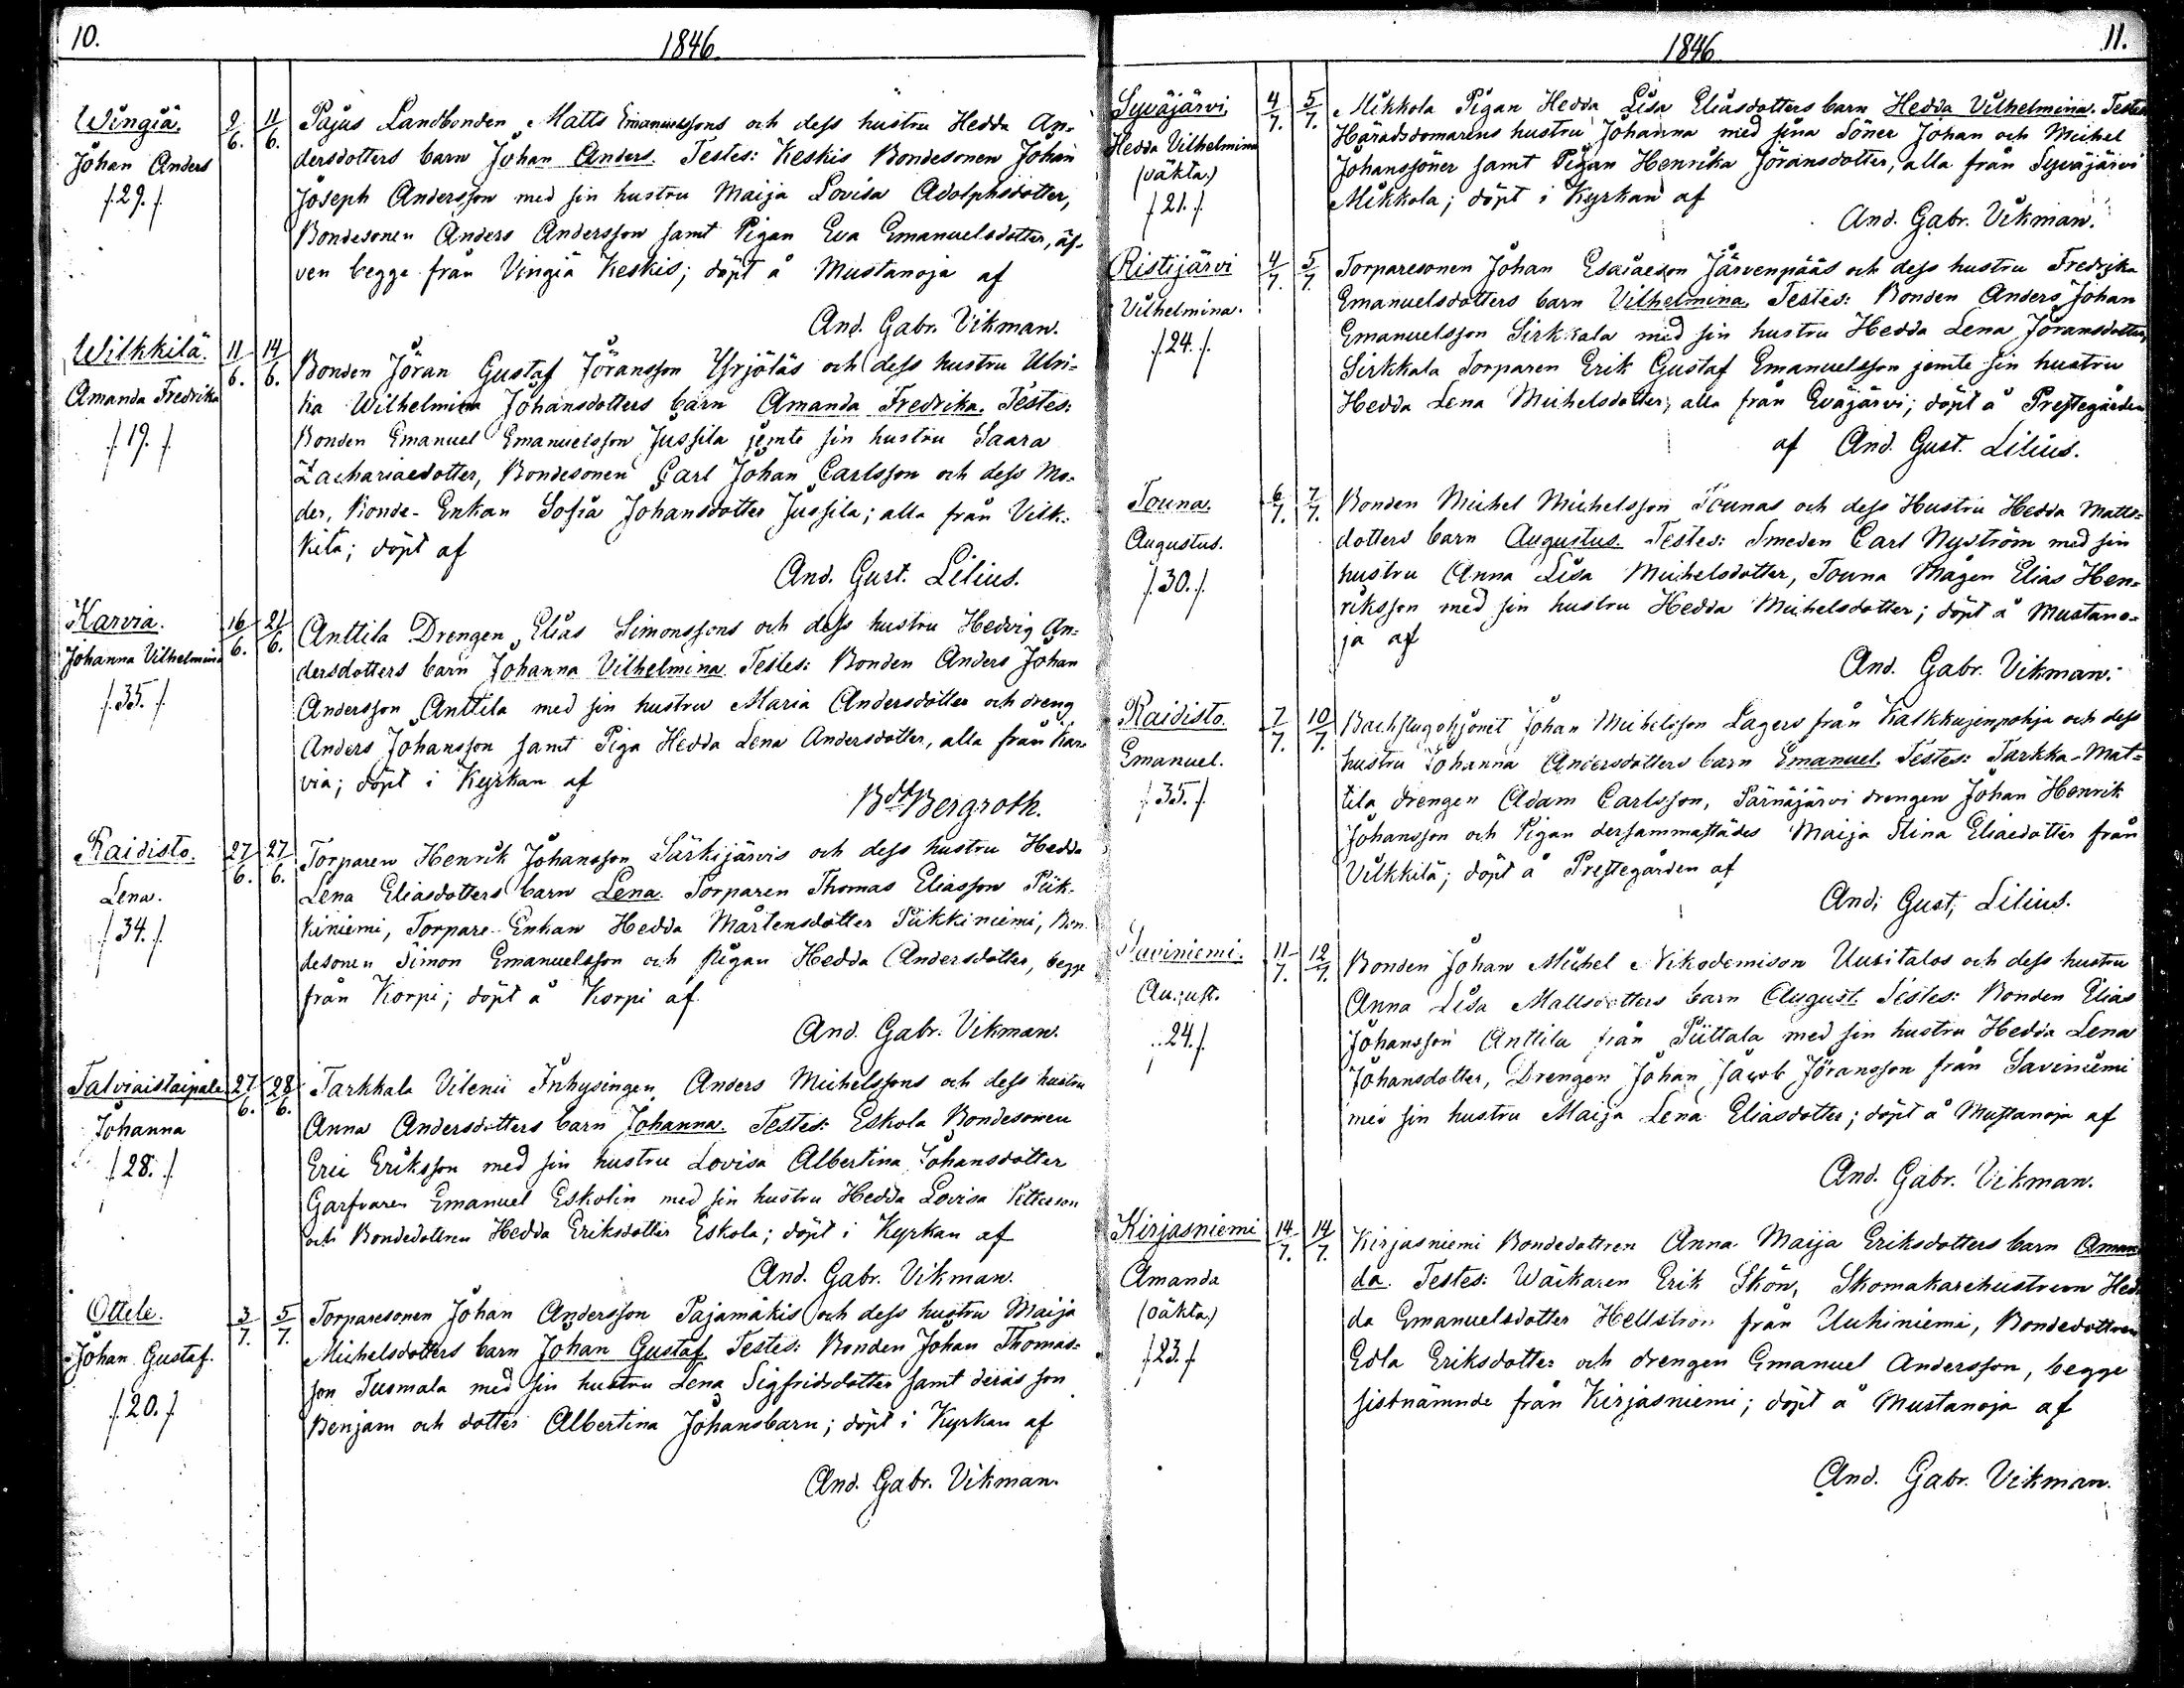 10.
1846.
Wingiä.
Johan Anders
/.29./
9/6.
11/6.
Pajus Landbonden Matts Emanuelssons och dess hustru Hedda An-
dersdotters barn Johan Anders. Testes: Keskis Bondesonen Johan
Joseph Andersson med sin hustru Maija Lovisa Adolphsdotter,
Bondesonen Anders Andersson samt Pigan Eva Emanuelsdotter, äf-
ven begge från Vingiä Keskis; döpt å Mustanoja af
And. Gabr. Vikman.
Wilkkilä.
Amanda Fredrika
/.19./
11/6.
14/6.
Bonden Jöran Gustaf Jöransson Yrjöläs och dess hustru Ulri-
ka Wilhelmina Johansdotters barn Amanda Fredrika. Testes:
Bonden Emanuel Emanuelsson Jussila jemte sin hustru Saara
Zachariaedotter, Bondesonen Carl Johan Carlsson och dess Mo-
der, Bonde-Enkan Sofia Johansdotter Jussila; alla från Vilk-
kilä; döpt af
And. Gust. Lilius.
Karvia.
Johanna Vilhelmina
/.35./
16/6.
21/6.
Anttila Drengen Elias Simonssons och dess hustru Hedvig An-
dersdotters barn Johanna Vilhelmina. Testes: Bonden Anders Johan
Andersson Anttila med sin hustru Maria Andersdotter och dreng
Anders Johansson samt Piga Hedda Lena Andersdotter, alla från Kar-
via; döpt i Kyrkan af
Bdd Bergroth.
Raidisto.
Lena.
/.34./
27/6.
27/6.
Torparen Henrik Johansson Särkijärvis och dess hustru Hedda
Lena Eliasdotters barn Lena. Torparen Thomas Eliasson Piik-
kiniemi, Torpare-Enkan Hedda Mårtensdotter Piikkiniemi, Bon-
desonen Simon Emanuelsson och pigan Hedda Andersdotter, begge
från Korpi; döpt å Korpi af
And. Gabr. Vikman.
Talviaistaipale
Johanna
/.28./
27/6.
28/6.
Tarkkala Vilenii Inhysingen Anders Michelssons och dess hustru
Anna Andersdotters barn Johanna. Testes: Eskola Bondesonen
Eric Eriksson med sin hustru Lovisa Albertina Johansdotter
Garfvaren Emanuel Eskolin med sin hustru Hedda Lovisa Petterson
och Bondedottren Hedda Eriksdotter Eskola; döpt i Kyrkan af
And. Gabr. Vikman.
Ottele.
Johan Gustaf.
/.20./
3/7.
5/7.
Torparesonen Johan Andersson Pajamäkis och dess hustru Maija
Michelsdotters barn Johan Gustaf. Testes: Bonden Johan Thomas-
son Tuomala med sin hustru Lena Sigfridsdotter samt deras son
Benjam och dotter Albertina Johansbarn; döpt i Kyrkan af
And. Gabr. Vikman.
1846.
11.
Syväjärvi
Hedda Vilhelmina
(oäkta.)
/.21./
4/7.
5/7.
Mikkola Pigan Hedda Lisa Eliasdotters barn Hedda Vilhelmina. Testes
Häradsdomarens hustru Johanna med sina Söner Johan och Michel
Johanssöner samt Pigan Henrika Jöransdotter, alla från Syväjärvi
Mikkola; döpt i Kyrkan af
And. Gabr. Vikman.
Ristijärvi
Vilhelmina.
/.24./
4/7.
5/7.
Torparesonen Johan Esaiaeson Järvenpääs och dess hustru Fredrika
Emanuelsdotters barn Vilhelmina. Testes: Bonden Anders Johan
Emanuelsson Sirkkala med sin hustru Hedda Lena Jöransdotter
Sirkkala Torparen Erik Gustaf Emanuelsson jemte sin hustru
Hedda Lena Michelsdotter, alla från Eväjärvi; döpt å Prestegården
af And. Gust. Lilius.
Touna.
Augustus.
/.30./
6/7.
7/7.
Bonden Michel Michelsson Tounas och dess Hustru Hedda Matts-
dotters barn Augustus. Testes: Smeden Carl Nyström med sin
hustru Anna Lisa Michelsdotter, Touna Mågen Elias Hen-
riksson med sin hustru Hedda Michelsdotter; döpt å Mustano-
ja af
And. Gabr. Vikman.
Raidisto.
Emanuel.
/.35./
7/7.
10/7.
Backstugohjonet Johan Michelsson Lagers från Kalkkujenpohja och dess
hustru Johanna Andersdotters barn Emanuel. Testes: Tarkka-Mat-
tila drengen Adam Carlsson, Särnäjärvi drengen Johan Henrik
Johansson och Pigan dersammastädes Maija Stina Eliaedotter från
Vilkkilä; döpt å Prestegården af
And. Gust. Lilius.
Saviniemi.
August.
24./
11/7.
12/7.
Bonden Johan Michel Nikodemison Uusitalos och dess hustru
Anna Lisa Mattsdotters barn August. Testes: Bonden Elias
Johansson Anttila från Piittala med sin hustru Hedda Lena
Johansdotter, Drengen Johan Jacob Jöransson från Saviniemi
med sin hustru Maija Lena Eliasdotter; döpt å Mustanoja af
And. Gabr. Vikman.
Kirjasniemi
Amanda
(oäkta.)
/.23./
14/7.
14/7.
Kirjasniemi Bondedottren Anna Maija Eriksdotters barn Aman-
da. Testes: Wäikaren Erik Skön, Skomakarehustrun Hed-
da Emanuelsdotter Hellström från Uuhiniemi, Bondedottren
Edla Eriksdotter och drengen Emanuel Andersson, begge
sistnämnde från Kirjasniemi; döpt å Mustanoja af
And. Gabr. Vikman.